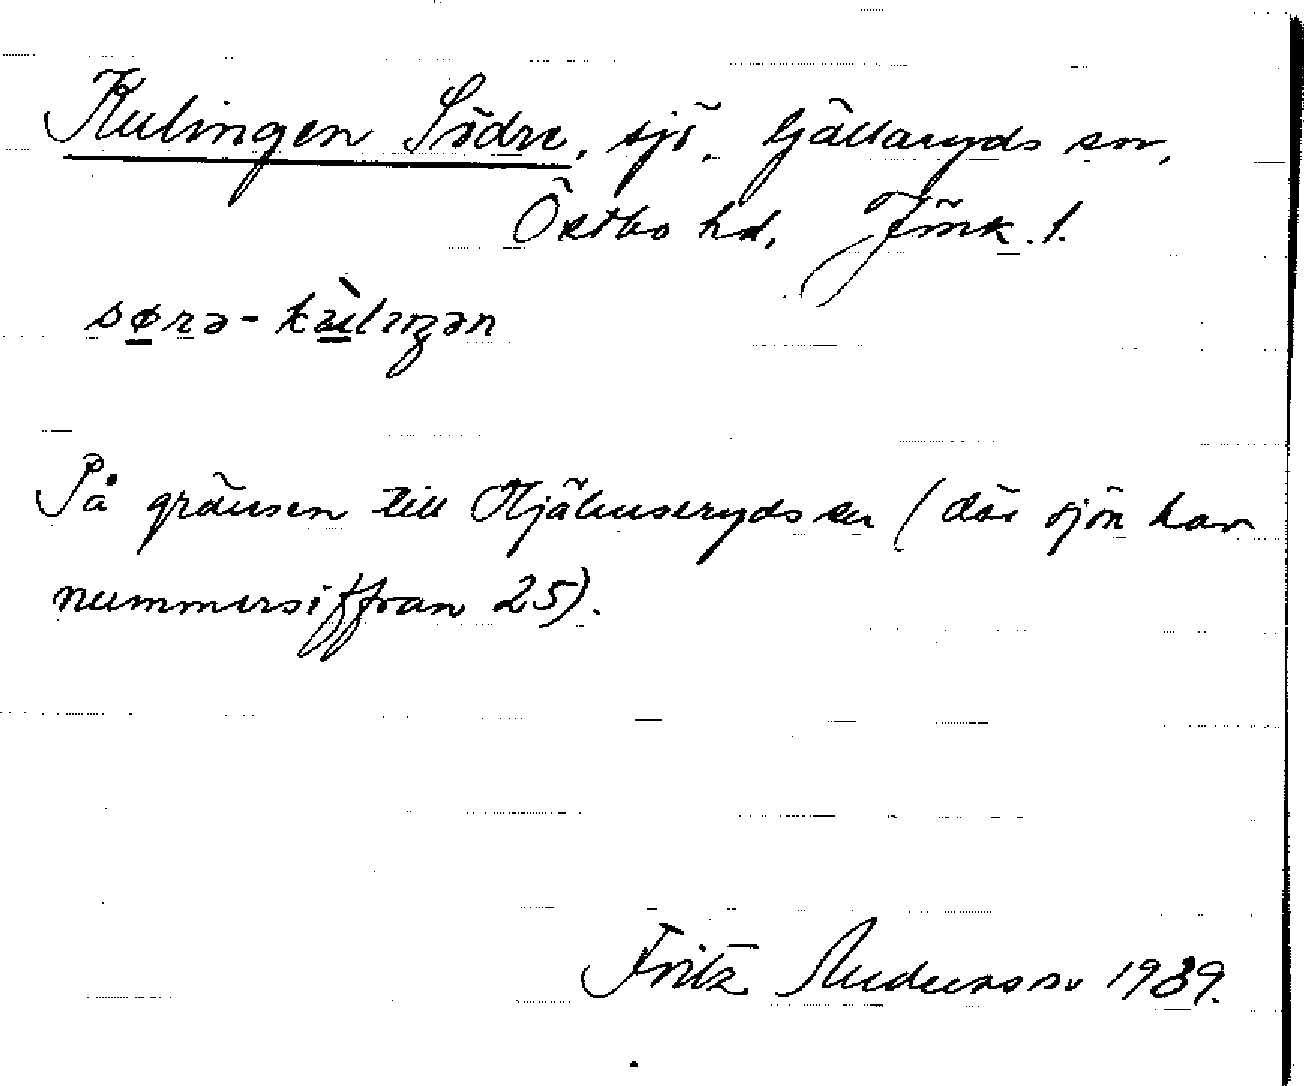 Kulingen Södre, sjö. Gällaryds sn,
Östbo hd, Jönk. l.
På gränsen till Hjälmseryds sn (där sjön har
nummersiffran 25).
Fritz Andersson 1939.